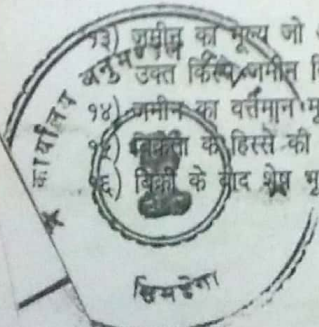 १३) जमीन का मूल्य जो
उक्त किस्म जमीन
१४) जमीन का वर्तमान
के हिस्से की
१६) बिक्री के बाद शेष
कार्यालय
सिमडेगा